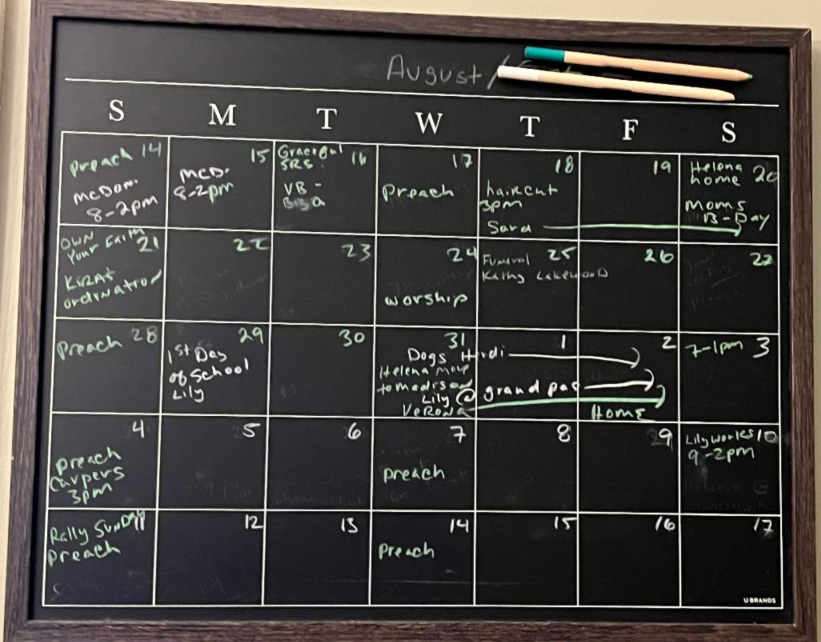 August /
S M T W T F S
Preach 14
McDon.
8-2pm
15
McD.
9-2pm
Graceful 16
SRS.
VB -
17
Preach
18
haircut
3pm
Sara
19
Helena 20
home
Moms
B-Day
OWN
Your Faith
21
Kiras
ordination
22
23
24
worship
Funeral 25
Kathy Lakewood
26
27
Preach 28
29
1st Day
of School
Lily
30
31
Dogs Heidi
Helena move
to madison
Lily @ grand pas
Verona
1
2
Home
7-1pm 3
4
Preach
Carpers
3pm
5
6
7
Preach
8
9
Lily works 10
9-2pm
Rally Sunday
Preach
12
13
14
Preach
15
16
17
U BRANDS